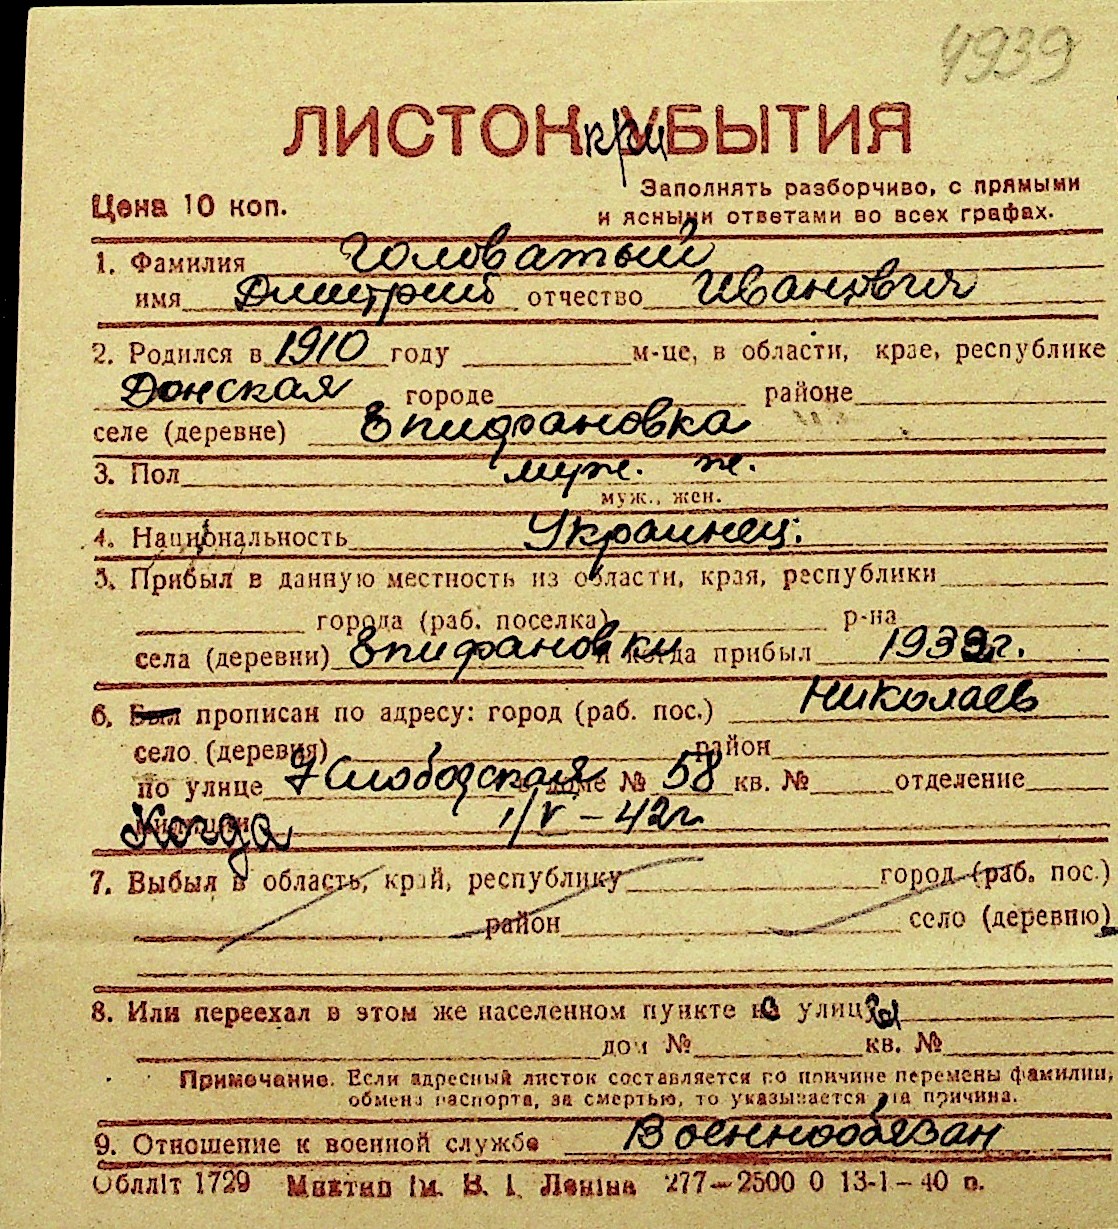 4939
ЛИСТОК УБЫТИЯ
Цена 10 коп.
Заполнять разборчиво, с прямыми
и ясными ответами во всех графах.
1. Фамилия Головатый
имя Дмитрий отчество Иванович
2. Родился в 1910 году м-це, в области, крае, республике
Донская городе районе
селе (деревне) Епифановка
3. Пол муж.
муж., жен.
4. Национальность Украинец.
5. Прибыл в данную местность из области, края, республики
города (раб. поселка) р-на
села (деревни) Епифановки и когда прибыл 1939г.
6. Был прописан по адресу: город (раб. пос.) Николаев
село (деревня) район
по улице 7 Слободская в доме № 58 кв. № отделение
милиции Когда 1/V – 42г.
7. Выбыл в область, край, республику город (раб. пос.)
район село (деревню)
8. Или переехал в этом же населенном пункте на улицу
дом № кв. №
Примечание. Если адресный листок составляется по причине перемены фамилии,
обмена паспорта, за смертью, то указывается эта причина.
9. Отношение к военной службе Военнообязан
Обллiт 1729 Миктип iм. В. I. Ленiна 277–2500 0 13-1-40 п.